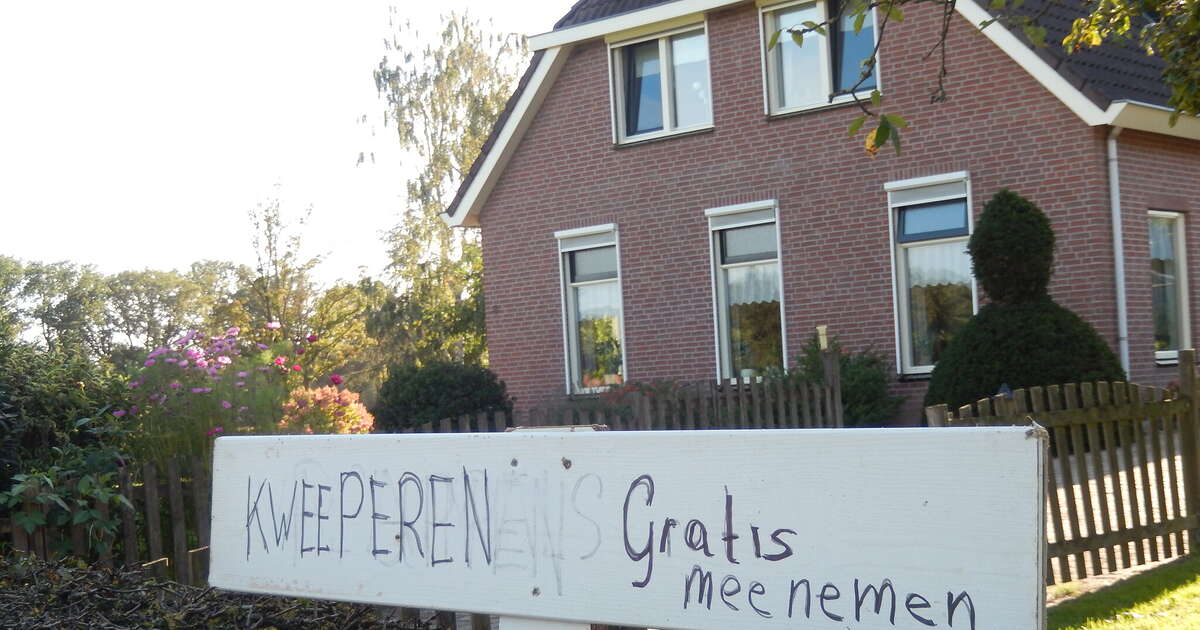 KWEEPEREN Gratis
meenemen